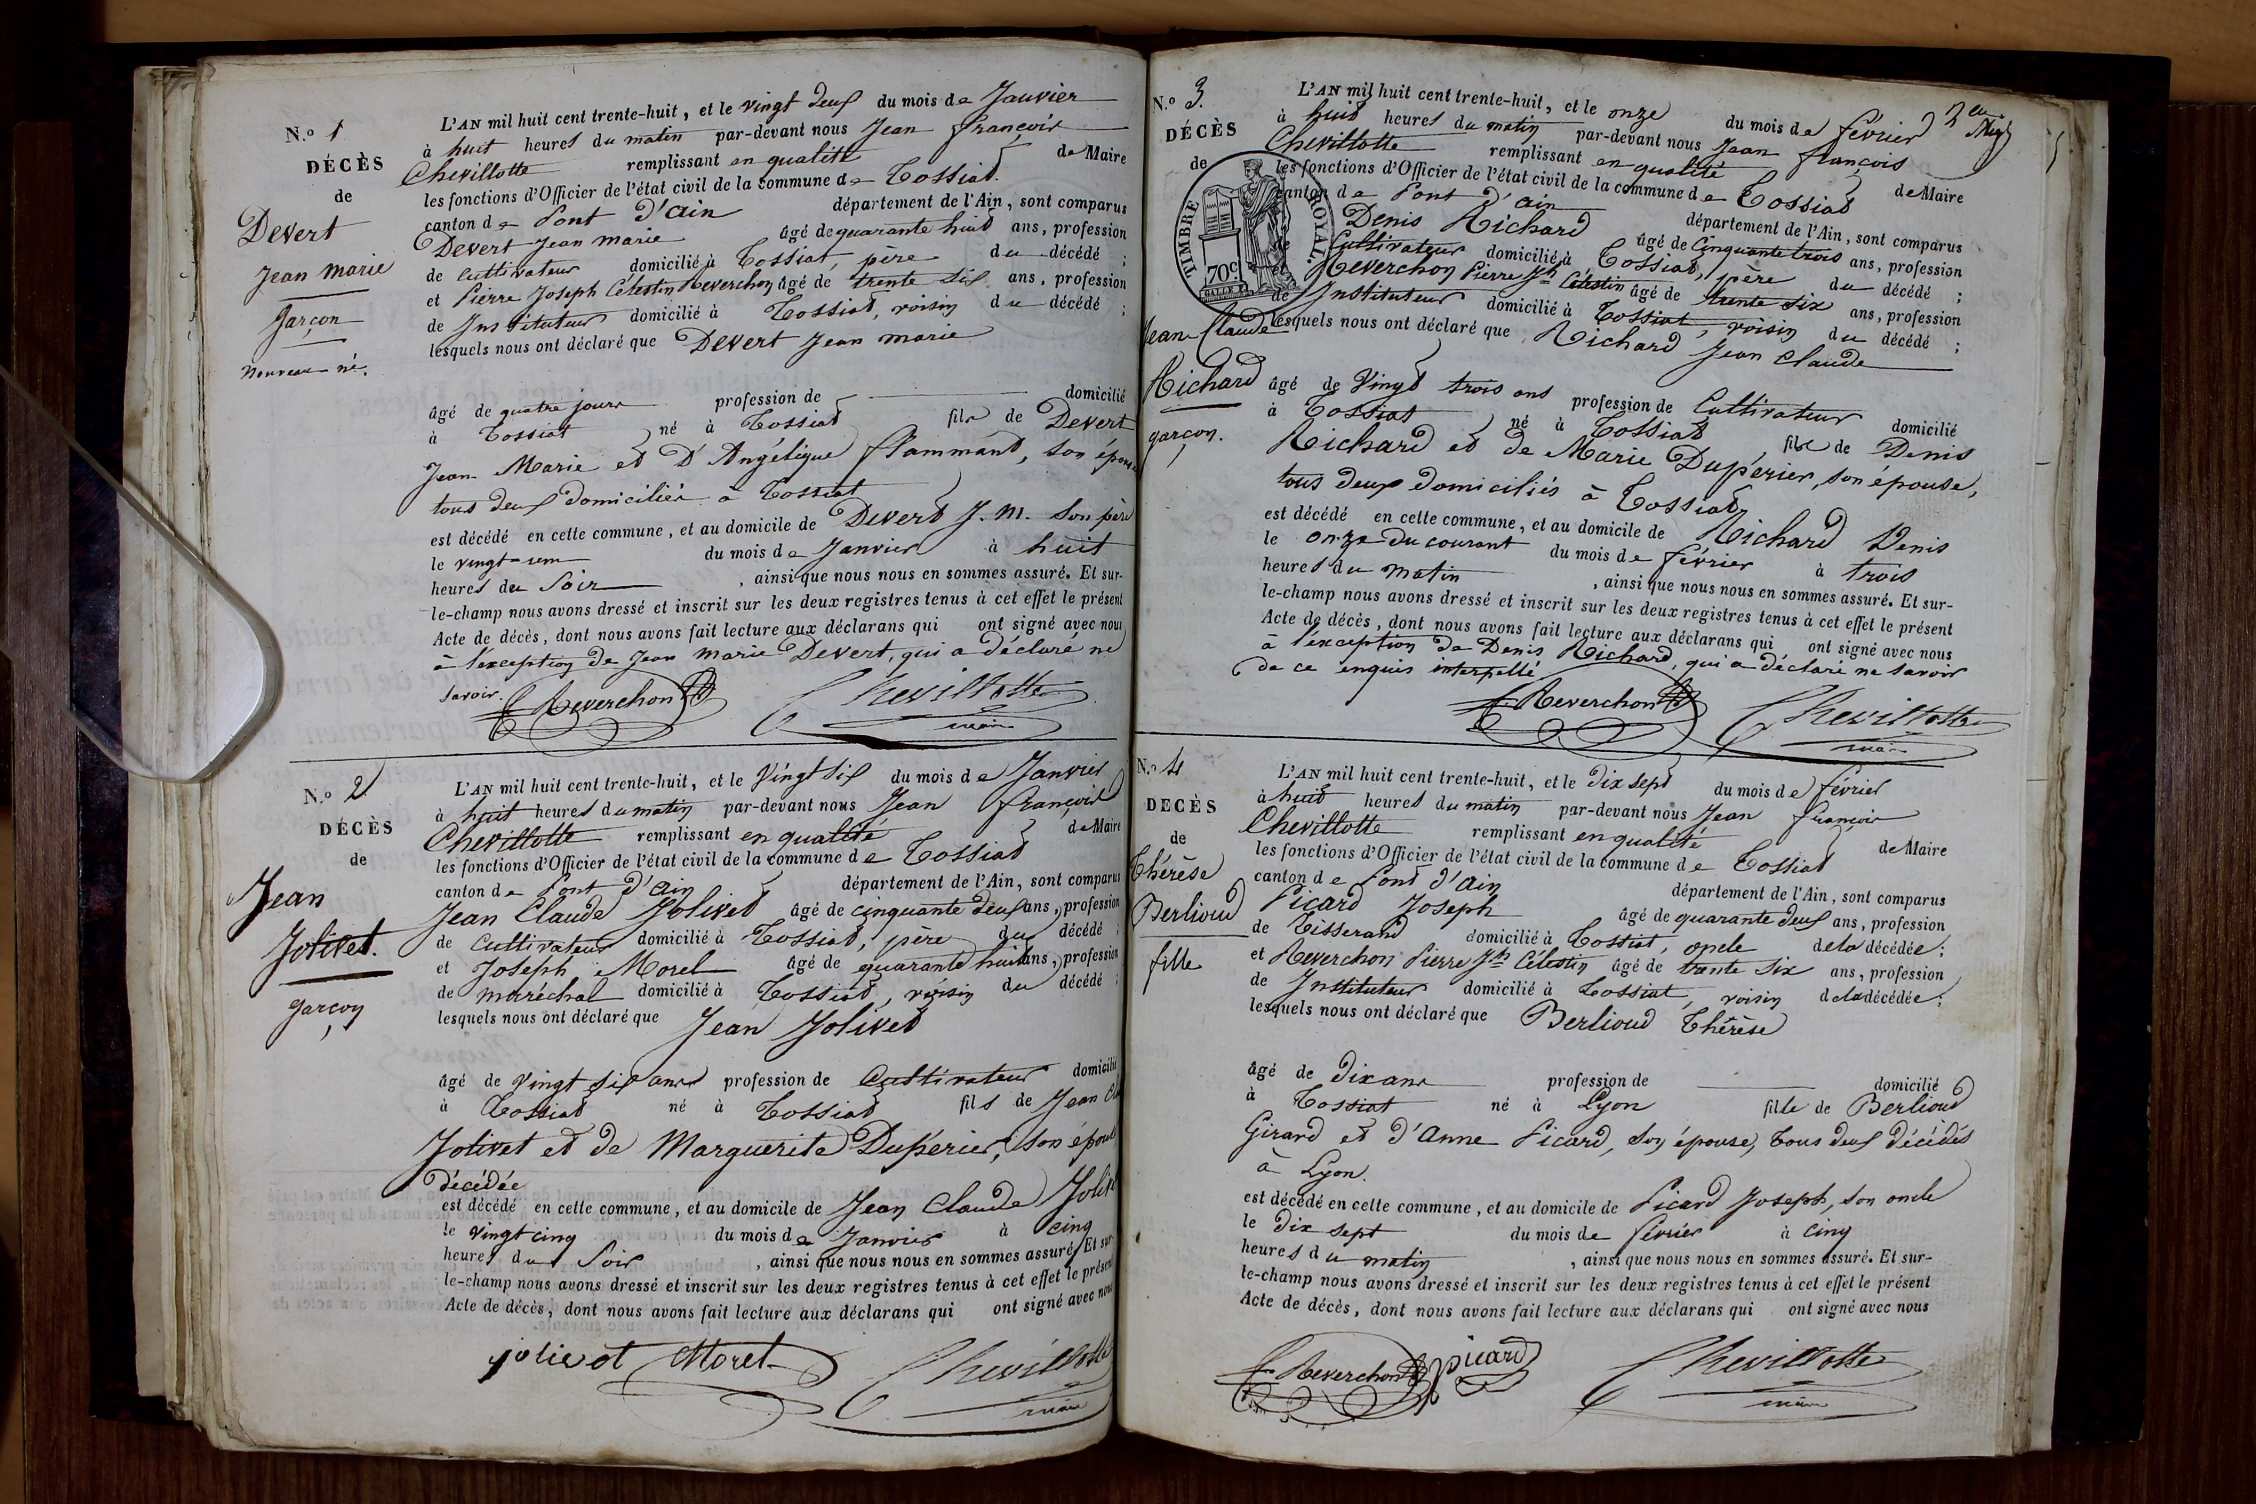 N.º 1
DÉCÈS
de
Devert
Jean Marie
garçon
nouveau né.
L'AN mil huit cent trente-huit, et le vingt deux du mois de Janvier
à huit heures du matin par-devant nous Jean françois
Chevillotte remplissant en qualité de Maire
les fonctions d'Officier de l'état civil de la commune de Tossiat
canton de Pont d'ain département de l'Ain, sont comparus
Devert Jean marie âgé de quarante huit ans, profession
de cultivateur domicilié à Tossiat, père du décédé ;
et Pierre Joseph Célestin Reverchon âgé de trente six ans, profession
de Instituteur domicilié à Tossiat, voisin du décédé ;
lesquels nous ont déclaré que Devert Jean marie
âgé de quatre jours profession de domicilié
à Tossiat né à Tossiat fils de Devert
Jean Marie et D'Angélique flammand, son épouse
tous deux domiciliés à Tossiat
est décédé en cette commune, et au domicile de Devert J. M. son père
le vingt-un du mois de Janvier à huit
heures du Soir , ainsi que nous nous en sommes assuré. Et sur-
le-champ nous avons dressé et inscrit sur les deux registres tenus à cet effet le présent
Acte de décès, dont nous avons fait lecture aux déclarans qui ont signé avec nous
à l'exception de Jean marie Devert, qui a déclaré ne
savoir.
Reverchon Chevillotte
maire
N.º 2
DÉCÈS
de
Jean
Jolivet.
garçon
L'AN mil huit cent trente-huit, et le vingt six du mois de Janvier
à huit heures du matin par-devant nous Jean françois
Chevillotte remplissant en qualité de Maire
les fonctions d'Officier de l'état civil de la commune de Tossiat
canton de Pont d'ain département de l'Ain, sont comparus
Jean Claude Jolivet âgé de cinquante deux ans, profession
de cultivateur domicilié à Tossiat, père du décédé ;
et Joseph Morel âgé de quarante huit ans, profession
de maréchal domicilié à Tossiat, voisin du décédé ;
lesquels nous ont déclaré que Jean Jolivet
âgé de vingt six ans profession de Cultivateur domicilié
à Tossiat né à Tossiat fils de Jean Cl
Jolivet et de Marguerite Dupérier, son épouse
décédée
est décédé en cette commune, et au domicile de Jean Claude Jolivet
le vingt cinq du mois de Janvier à cinq
heures du Soir , ainsi que nous nous en sommes assuré. Et sur-
le-champ nous avons dressé et inscrit sur les deux registres tenus à cet effet le présent
Acte de décès, dont nous avons fait lecture aux déclarans qui ont signé avec nous
jolivot Morel Chevillotte
maire
N.º 3.
DÉCÈS
de
TIMBRE ROYAL
70 c.
Jean Claude
Richard
garçon.
L'AN mil huit cent trente-huit, et le onze du mois de février
à huit heures du matin par-devant nous Jean françois
Chevillotte remplissant en qualité de Maire
les fonctions d'Officier de l'état civil de la commune de Tossiat
canton de Pont d'ain département de l'Ain, sont comparus
Denis Richard âgé de Cinquante trois ans, profession
de Cultivateur domicilié à Tossiat, père du décédé ;
et Reverchon Pierre Jh Célestin âgé de trente six ans, profession
de Instituteur domicilié à Tossiat, voisin du décédé ;
lesquels nous ont déclaré que Richard Jean Claude
âgé de Vingt trois ans profession de Cultivateur domicilié
à Tossiat né à Tossiat fils de Denis
Richard et de Marie Dupérier, son épouse,
tous deux domiciliés à Tossiat,
est décédé en cette commune, et au domicile de Richard Denis
le onze du courant du mois de février à trois
heures du matin , ainsi que nous nous en sommes assuré. Et sur-
le-champ nous avons dressé et inscrit sur les deux registres tenus à cet effet le présent
Acte de décès, dont nous avons fait lecture aux déclarans qui ont signé avec nous
à l'exception de Denis Richard, qui a déclaré ne savoir
de ce enquis interpellé
Reverchon Chevillotte
maire
N.º 4
DÉCÈS
de
Thérèse
Berlioud
fille
L'AN mil huit cent trente-huit, et le dix sept du mois de février
à huit heures du matin par-devant nous Jean françois
Chevillotte remplissant en qualité de Maire
les fonctions d'Officier de l'état civil de la commune de Tossiat
canton de Pont d'ain département de l'Ain, sont comparus
Picard Joseph âgé de quarante deux ans, profession
de Tisserand domicilié à Tossiat, oncle de la décédée ;
et Reverchon Pierre Jh Célestin âgé de trente six ans, profession
de Instituteur domicilié à Tossiat, voisin de la décédée ;
lesquels nous ont déclaré que Berlioud Thérèse
âgé de dix ans profession de domicilié
à Tossiat né à Lyon fille de Berlioud
Girard et d'Anne Picard, son épouse, tous deux décédés
à Lyon.
est décédé en cette commune, et au domicile de Picard Joseph, son oncle
le dix sept du mois de février à cinq
heures du matin , ainsi que nous nous en sommes assuré. Et sur-
le-champ nous avons dressé et inscrit sur les deux registres tenus à cet effet le présent
Acte de décès, dont nous avons fait lecture aux déclarans qui ont signé avec nous
Reverchon picard Chevillotte
maire